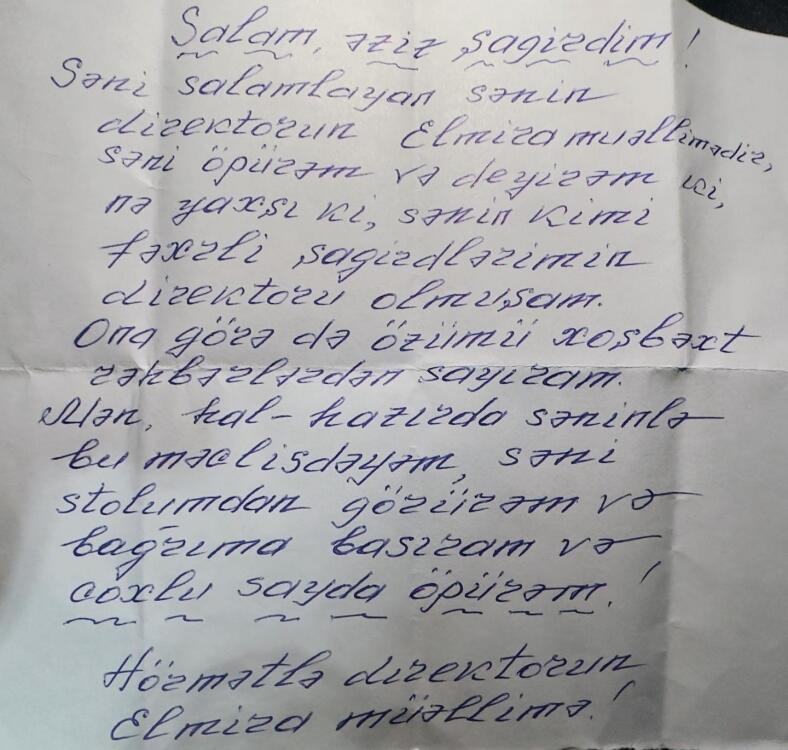 Salam, əziz şagirdim!
Səni salamlayan sənin
direktorun Elmira muəllimədir,
səni öpürəm və deyirəm ki,
nə yaxşı ki, sənin kimi
fəxrli şagirdlərimin
direktoru olmuşam.
Ona görə də özümü xoşbəxt
rəhbərlərdən sayıram.
Mən, hal-hazırda səninlə
bu məclisdəyəm, səni
stolumdan görürəm və
bağrıma basıram və
çoxlu sayda öpürəm.!
Hörmətlə direktorun
Elmira müəllimə.!